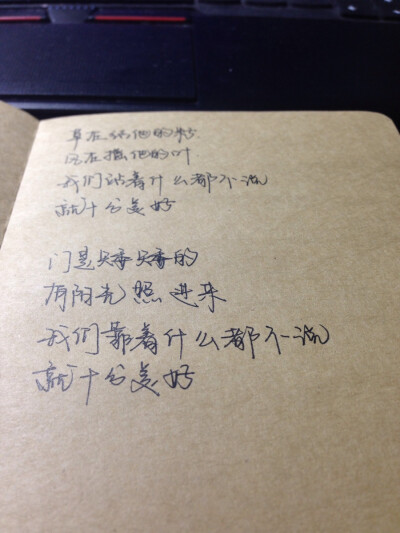 草在结他的籽
风在摇他的叶
我们站着什么都不说
就十分美好
门是矮矮的
有阳光照进来
我们靠着什么都不说
就十分美好